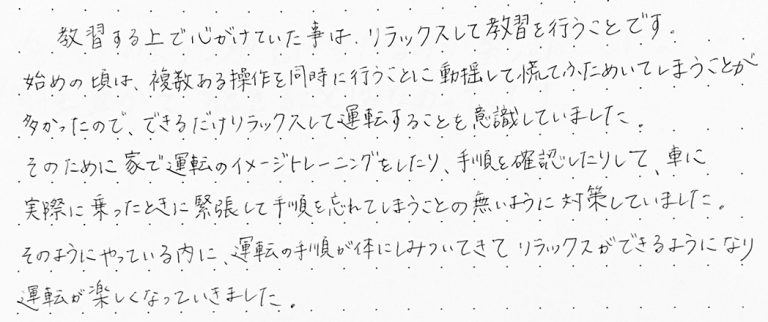 教習する上で心がけていた事は、リラックスして教習を行うことです。
始めの頃は、複数ある操作を同時に行うことに動揺して慌てふためいてしまうことが
多かったので、できるだけリラックスして運転することを意識していました。
そのために家で運転のイメージトレーニングをしたり、手順を確認したりして、車に
実際に乗ったときに緊張して手順を忘れてしまうことの無いように対策していました。
そのようにやっている内に、運転の手順が体にしみついてきてリラックスができるようになり
運転が楽しくなっていきました。